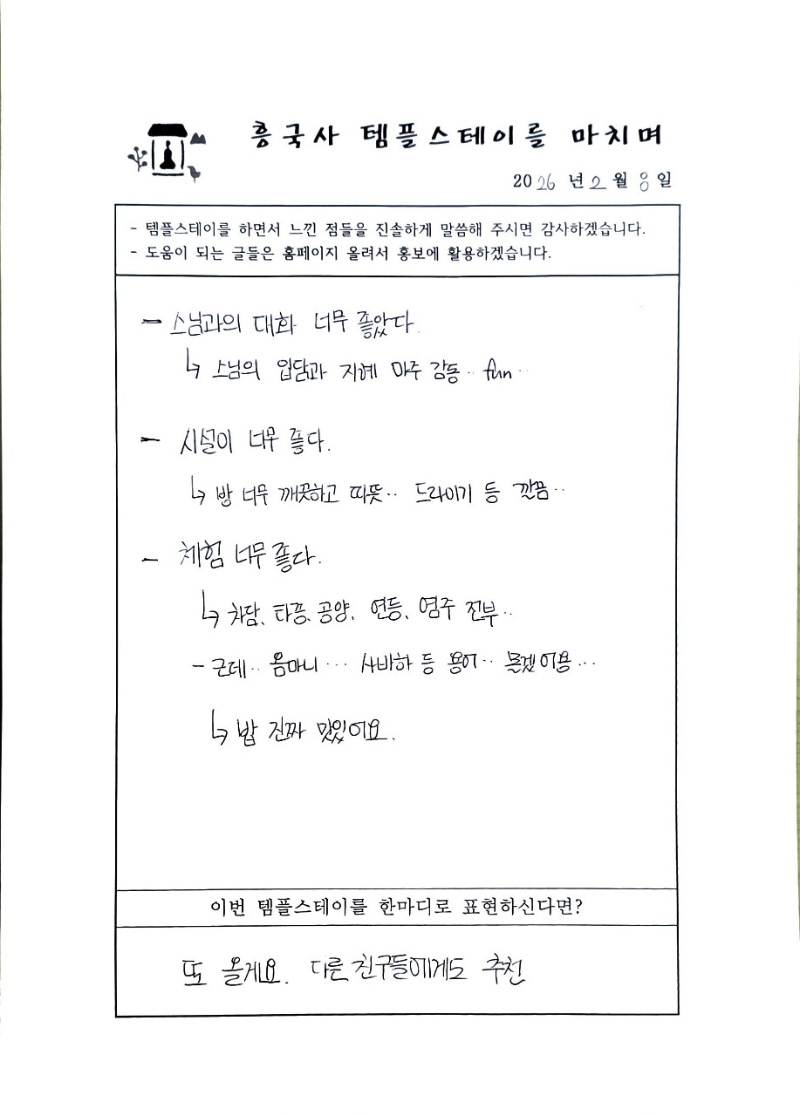 흥국사 템플스테이를 마치며
2026 년 2 월 8 일
- 템플스테이를 하면서 느낀 점들을 진솔하게 말씀해 주시면 감사하겠습니다.
- 도움이 되는 글들은 홈페이지 올려서 홍보에 활용하겠습니다.
- 스님과의 대화 너무 좋았다.
↳ 스님의 입담과 지혜 아주 감동.. fun..
- 시설이 너무 좋다.
↳ 방 너무 깨끗하고 따뜻.. 드라이기 등 깔끔..
- 체험 너무 좋다.
↳ 차담, 타종, 공양, 연등, 염주 전부..
- 근데.. 옴마니... 사바하 등 용어.. 모르겠어용...
↳ 밥 진짜 맛있어요.
이번 템플스테이를 한마디로 표현하신다면?
또 올게요. 다른 친구들에게도 추천